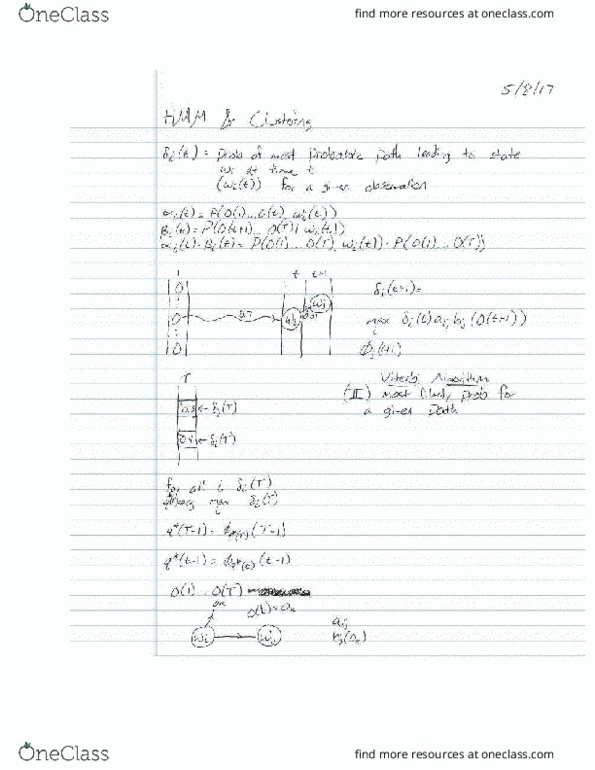 OneClass
find more resources at oneclass.com
5/8/17
HMM & Clustering
δi(t) = prob of most probable path leading to state
wi at time t
(wi(t)) for a given observation
αi(t) = P(O(1)...O(t), wi(t))
βi(t) = P(O(t+1)... O(T) | wi(t))
αi(t)·βi(t) = P(O(1)... O(T), wi(t)) · P(O(1)... O(T))
1 t t+1
δj(t+1) =
max δi(t) aij bj (O(t+1))
T
Viterbi Algorithm
(II) most likely prob for
a given path
0.3 ← δi(T)
← δi(T)
for all i δi(T)
max δi(T)
q*(T-1) = (T-1)
q*(t-1) = (t-1)
O(1) ... O(T)
O(t) = On
wi → wj
aij
bj(On)
OneClass
find more resources at oneclass.com